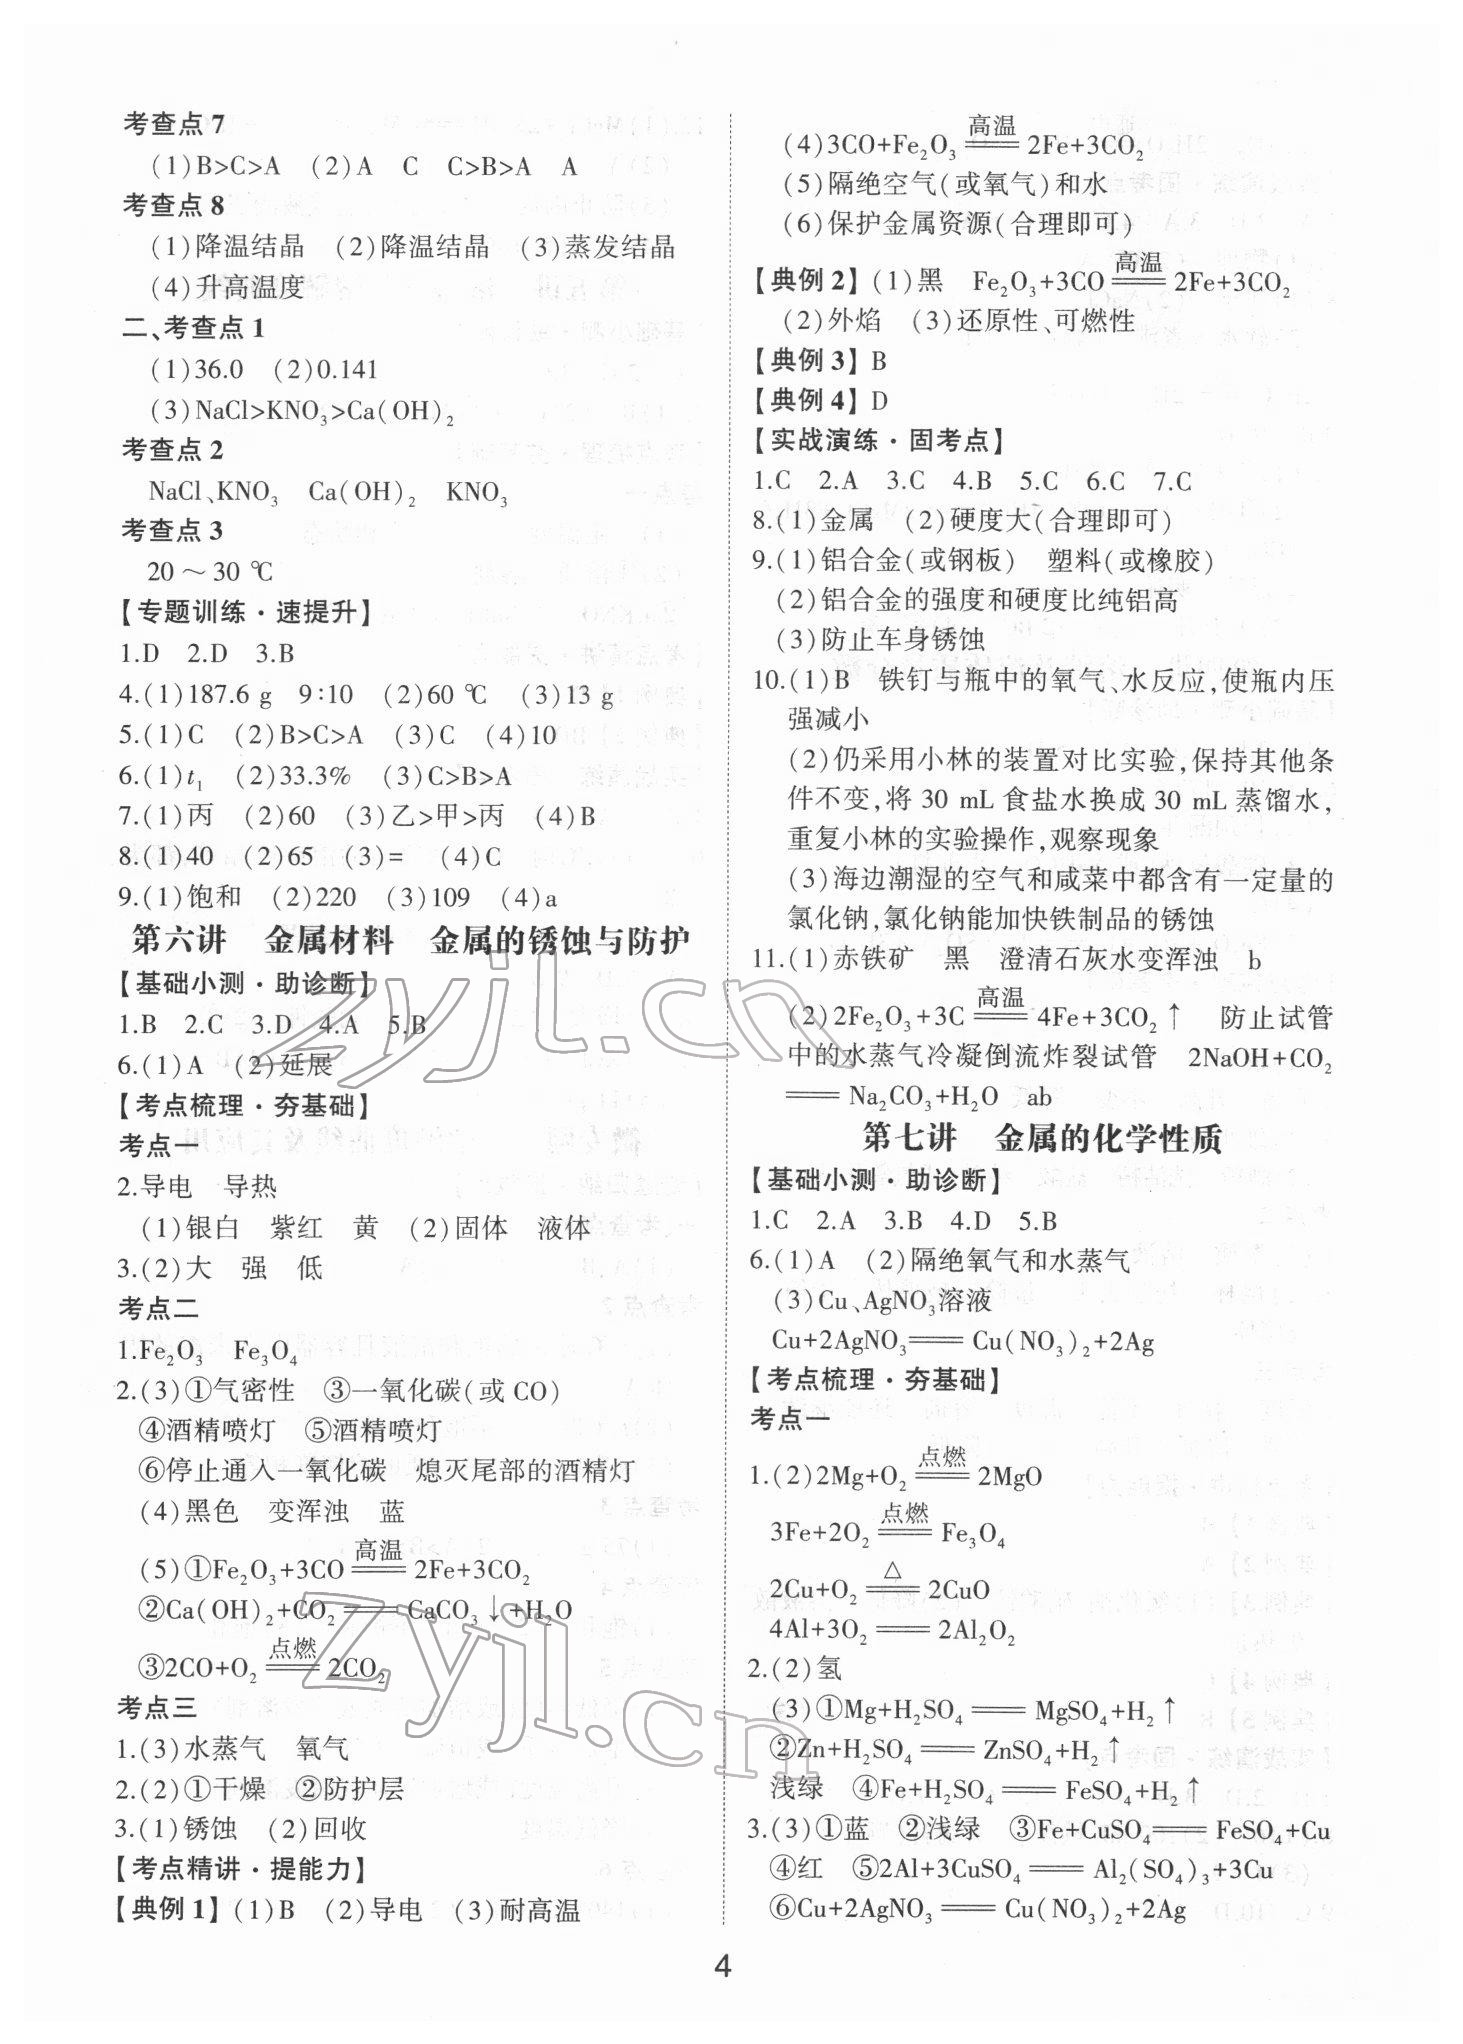 考查点 7
(1)B>C>A (2)A C C>B>A A
考查点 8
(1)降温结晶 (2)降温结晶 (3)蒸发结晶
(4)升高温度
二、考查点 1
(1)36.0 (2)0.141
(3)NaCl>KNO₃>Ca(OH)₂
考查点 2
NaCl、KNO₃ Ca(OH)₂ KNO₃
考查点 3
20～30 ℃
【专题训练·速提升】
1.D 2.D 3.B
4.(1)187.6 g 9∶10 (2)60 ℃ (3)13 g
5.(1)C (2)B>C>A (3)C (4)10
6.(1)t₁ (2)33.3% (3)C>B>A
7.(1)丙 (2)60 (3)乙>甲>丙 (4)B
8.(1)40 (2)65 (3)= (4)C
9.(1)饱和 (2)220 (3)109 (4)a
第六讲 金属材料 金属的锈蚀与防护
【基础小测·助诊断】
1.B 2.C 3.D 4.A 5.B
6.(1)A (2)延展
【考点梳理·夯基础】
考点一
2.导电 导热
(1)银白 紫红 黄 (2)固体 液体
3.(2)大 强 低
考点二
1.Fe₂O₃ Fe₃O₄
2.(3)①气密性 ③一氧化碳(或 CO)
④酒精喷灯 ⑤酒精喷灯
⑥停止通入一氧化碳 熄灭尾部的酒精灯
(4)黑色 变浑浊 蓝
(5)①Fe₂O₃+3CO ══高温══ 2Fe+3CO₂
②Ca(OH)₂+CO₂ ══ CaCO₃↓+H₂O
③2CO+O₂ ══点燃══ 2CO₂
考点三
1.(3)水蒸气 氧气
2.(2)①干燥 ②防护层
3.(1)锈蚀 (2)回收
【考点精讲·提能力】
【典例 1】(1)B (2)导电 (3)耐高温
(4)3CO+Fe₂O₃ ══高温══ 2Fe+3CO₂
(5)隔绝空气(或氧气)和水
(6)保护金属资源(合理即可)
【典例 2】(1)黑 Fe₂O₃+3CO ══高温══ 2Fe+3CO₂
(2)外焰 (3)还原性、可燃性
【典例 3】B
【典例 4】D
【实战演练·固考点】
1.C 2.A 3.C 4.B 5.C 6.C 7.C
8.(1)金属 (2)硬度大(合理即可)
9.(1)铝合金(或钢板) 塑料(或橡胶)
(2)铝合金的强度和硬度比纯铝高
(3)防止车身锈蚀
10.(1)B 铁钉与瓶中的氧气、水反应,使瓶内压
强减小
(2)仍采用小林的装置对比实验,保持其他条
件不变,将 30 mL 食盐水换成 30 mL 蒸馏水,
重复小林的实验操作,观察现象
(3)海边潮湿的空气和咸菜中都含有一定量的
氯化钠,氯化钠能加快铁制品的锈蚀
11.(1)赤铁矿 黑 澄清石灰水变浑浊 b
(2)2Fe₂O₃+3C ══高温══ 4Fe+3CO₂↑ 防止试管
中的水蒸气冷凝倒流炸裂试管 2NaOH+CO₂
══ Na₂CO₃+H₂O ab
第七讲 金属的化学性质
【基础小测·助诊断】
1.C 2.A 3.B 4.D 5.B
6.(1)A (2)隔绝氧气和水蒸气
(3)Cu、AgNO₃溶液
Cu+2AgNO₃ ══ Cu(NO₃)₂+2Ag
【考点梳理·夯基础】
考点一
1.(2)2Mg+O₂ ══点燃══ 2MgO
3Fe+2O₂ ══点燃══ Fe₃O₄
2Cu+O₂ ══△══ 2CuO
4Al+3O₂ ══ 2Al₂O₂
2.(2)氢
(3)①Mg+H₂SO₄ ══ MgSO₄+H₂↑
②Zn+H₂SO₄ ══ ZnSO₄+H₂↑
浅绿 ④Fe+H₂SO₄ ══ FeSO₄+H₂↑
3.(3)①蓝 ②浅绿 ③Fe+CuSO₄ ══ FeSO₄+Cu
④红 ⑤2Al+3CuSO₄ ══ Al₂(SO₄)₃+3Cu
⑥Cu+2AgNO₃ ══ Cu(NO₃)₂+2Ag
4
zyjl.cn
zyjl.cn